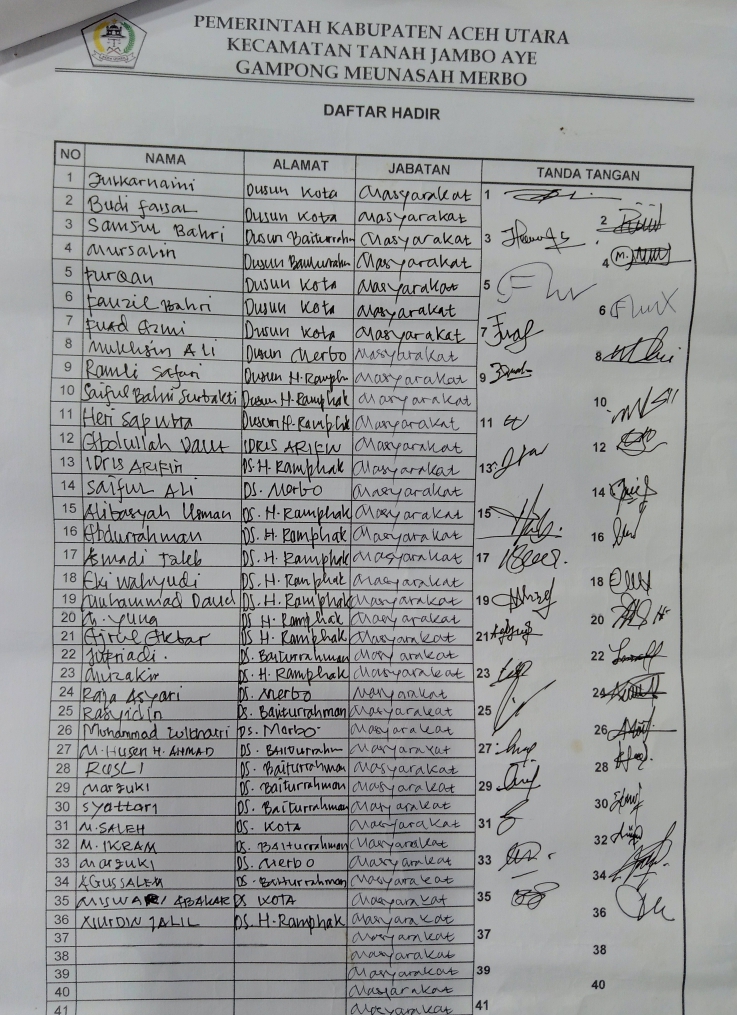 PEMERINTAH KABUPATEN ACEH UTARA
KECAMATAN TANAH JAMBO AYE
GAMPONG MEUNASAH MERBO
DAFTAR HADIR
NO NAMA ALAMAT JABATAN TANDA TANGAN
1 Zulkarnaini Dusun Kota Masyarakat 1
2 Budi Faisal Dusun Kota Masyarakat 2
3 Samsul Bahri Dusun Baiturrahm Masyarakat 3
4 Mursalin Dusun Masyarakat 4
5 Furqan Dusun Kota Masyarakat 5
6 Fauzil Bahri Dusun Kota Masyarakat 6
7 Fuad Azmi Dusun Kota Masyarakat 7
8 Mukhsin Ali Dusun Merbo Masyarakat 8
9 Ramli Safari Dusun H. Ramph Masyarakat 9
10 Saiful Bahri Surbakti Dusun H. Ramphak Masyarakat 10
11 Heri Saputra Dusun H. Ramphak Masyarakat 11
12 Abdullah Daut IDRIS ARIFIN Masyarakat 12
13 IDRIS ARIFIN DS. H. Ramphak Masyarakat 13
14 Saiful Ali DS. Merbo Masyarakat 14
15 Alibasyah Usman DS. H. Ramphak Masyarakat 15
16 Abdurrahman DS. H. Ramphak Masyarakat 16
17 Asmadi Taleb DS. H. Ramphak Masyarakat 17
18 Eki Wahyudi DS. H. Ramphak Masyarakat 18
19 Muhammad Daud DS. H. Ramphak Masyarakat 19
20 M. Yung DS H. Ramphak Masyarakat 20
21 Airul Akbar DS. H. Ramphak Masyarakat 21
22 Jupriadi. DS. Baiturrahman Masyarakat 22
23 Muzakir DS. H. Ramphak Masyarakat 23
24 Raja Asyari DS. Merbo Masyarakat 24
25 Rasyidin DS. Baiturrahman Masyarakat 25
26 Muhammad Zulkhairi DS. Merbo Masyarakat 26
27 M. Husen H. AHMAD DS. Baiturrahm Masyarakat 27
28 RUSLI DS. Baiturrahman Masyarakat 28
29 Marzuki DS. Baiturrahman Masyarakat 29
30 Syattari DS. Baiturrahman Masyarakat 30
31 M. SALEH DS. KOTA Masyarakat 31
32 M. IKRAM DS. Baiturrahman Masyarakat 32
33 Marzuki DS. Merbo Masyarakat 33
34 AGUSSALEM DS. Baiturrahman Masyarakat 34
35 MISWARI ABAKAR DS KOTA Masyarakat 35
36 NURDIN JALIL DS. H. Ramphak Masyarakat 36
37 Masyarakat 37
38 Masyarakat 38
39 Masyarakat 39
40 Masyarakat 40
41 Masyarakat 41